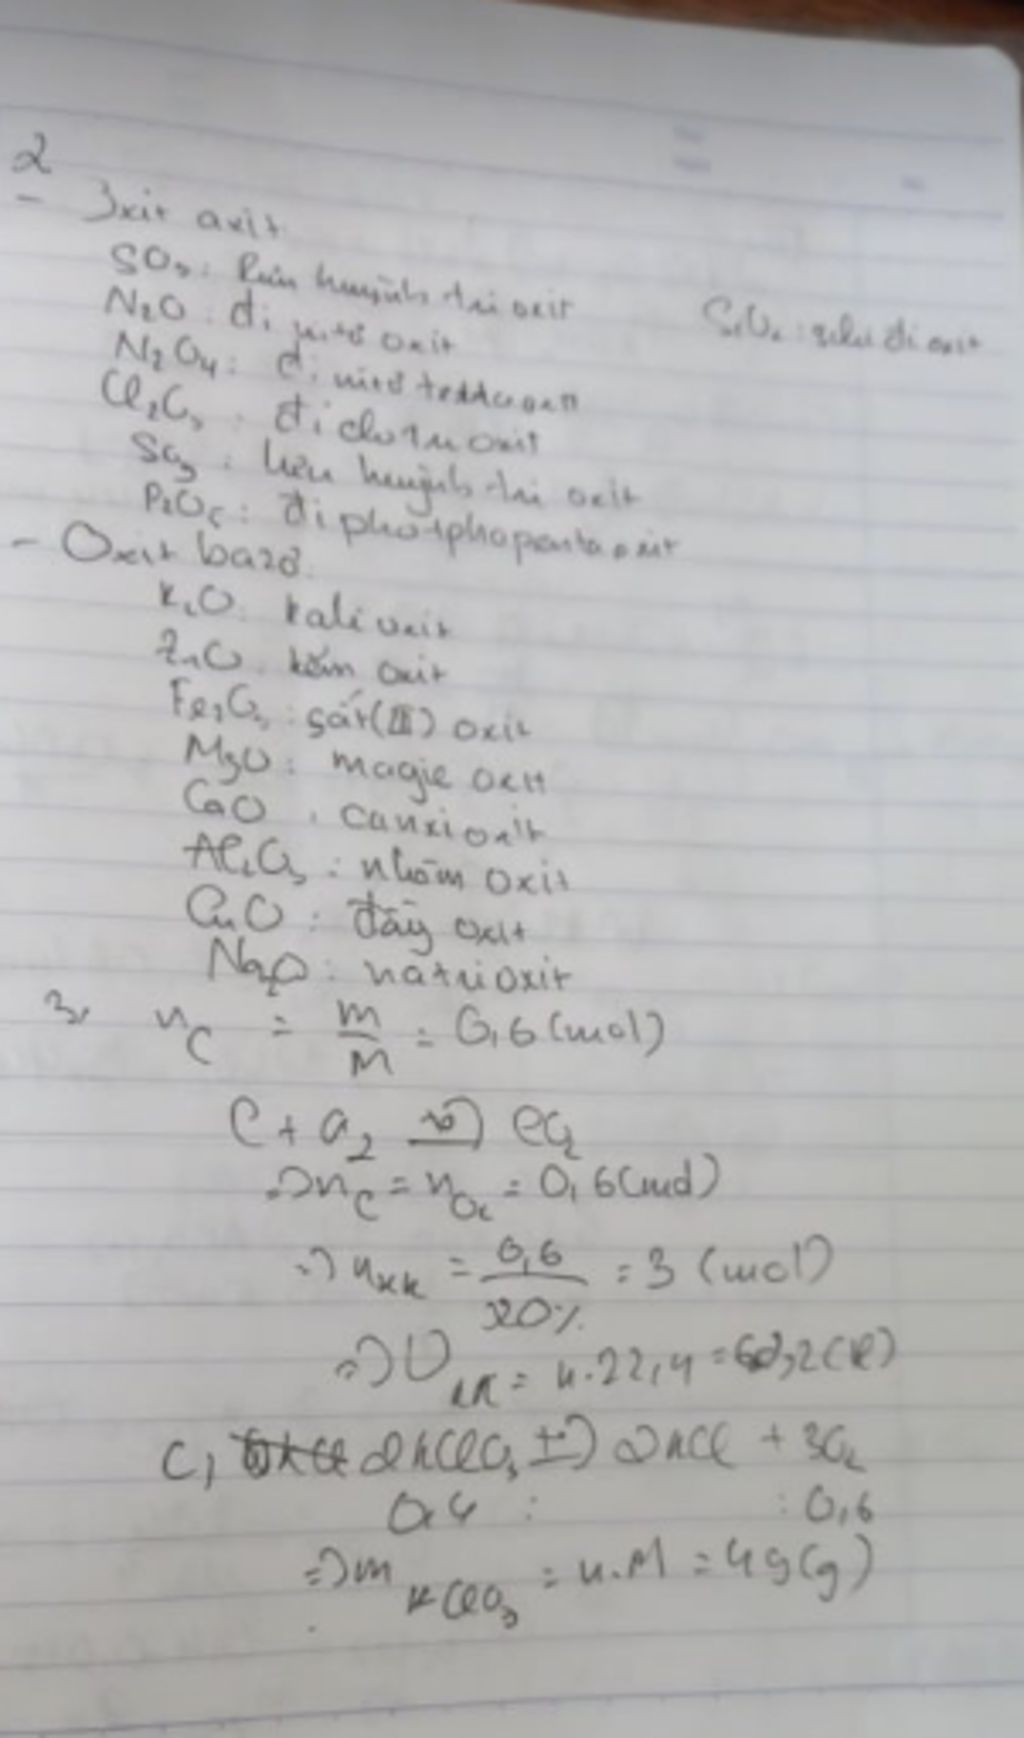 2
- Oxit axit
SO3: lưu huỳnh tri oxit
SiO2: silic đi oxit
N2O: đi nitơ oxit
N2O4: đi nitơ tetra oxit
Cl2O3: đi clo tri oxit
SO3: lưu huỳnh tri oxit
P2O5: đi photpho penta oxit
- Oxit bazơ
K2O: kali oxit
ZnO: kẽm oxit
Fe2O3: sắt (III) oxit
MgO: magie oxit
CaO: canxi oxit
Al2O3: nhôm oxit
CuO: đồng oxit
Na2O: natri oxit
3, nC = m/M = 0,6 (mol)
C + O2 → CO2
=> nC = nO2 = 0,6 (mol)
=> nKK = 0,6/20% = 3 (mol)
=> VKK = n.22,4 = 67,2 (l)
C, 2KClO3 → 2KCl + 3O2
0,4 : : 0,6
=> mKClO3 = n.M = 49 (g)